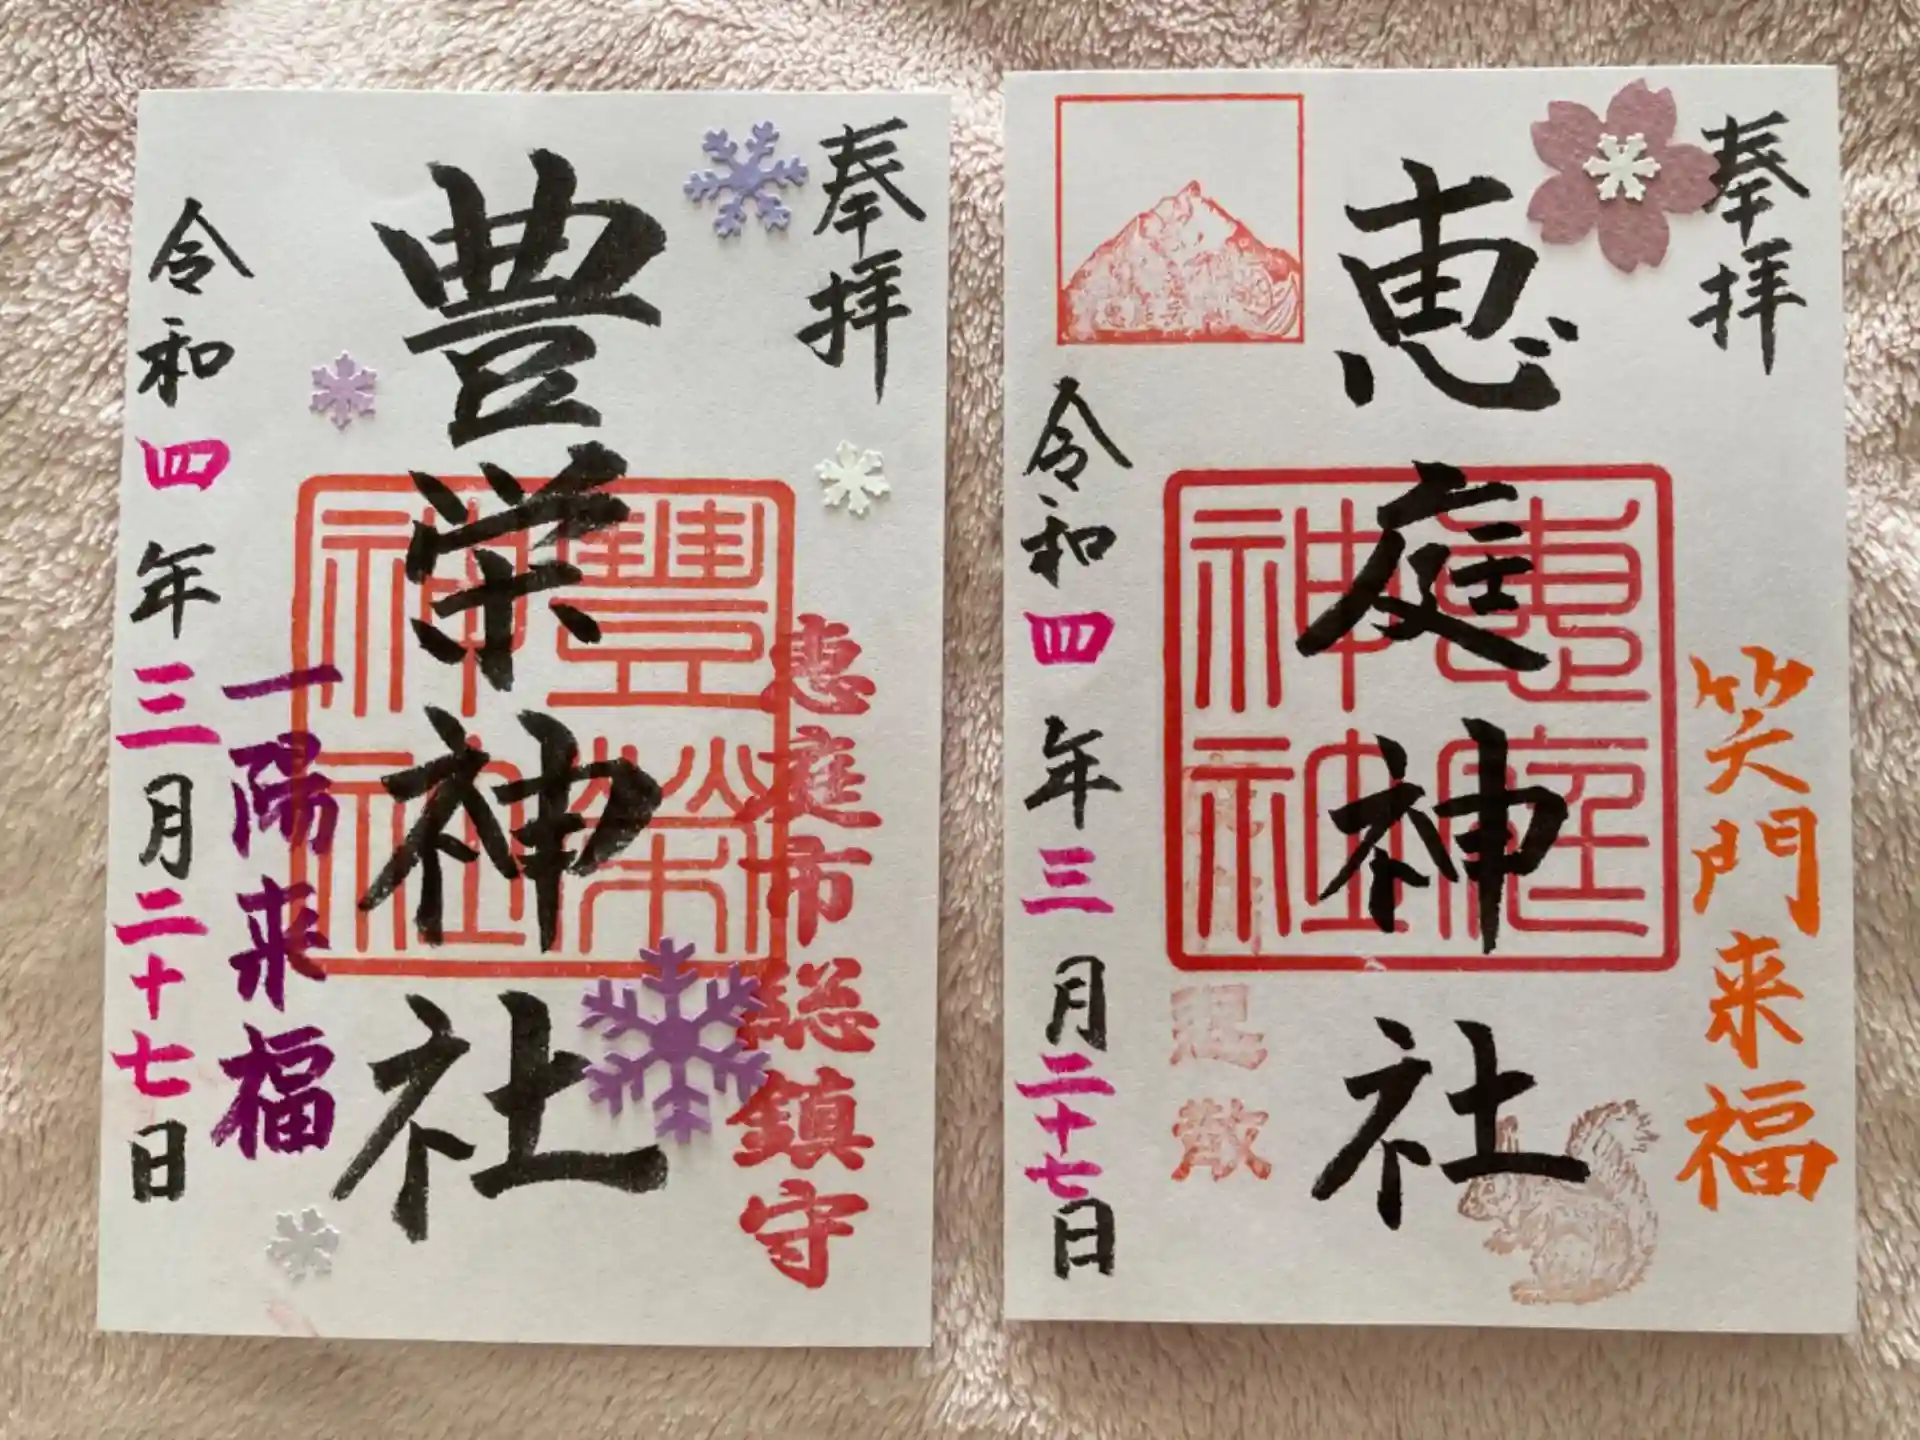 奉拝
豊栄神社
豐榮神社
恵庭市総鎮守
一陽来福
令和四年三月二十七日
奉拝
恵庭神社
恵庭神社
笑門来福
退散
令和四年三月二十七日